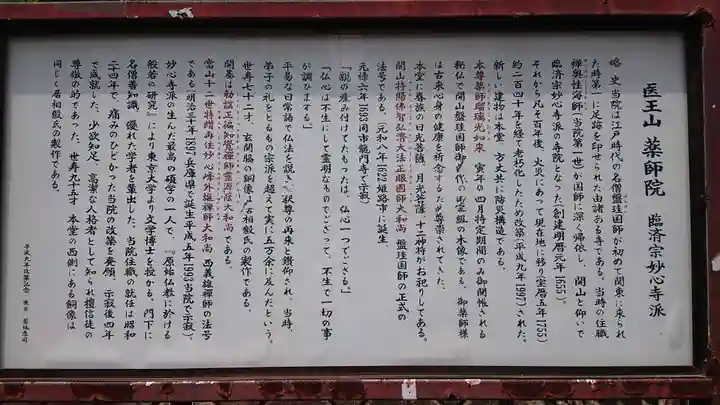 医王山 薬師院 臨済宗妙心寺派
略 史 当院は江戸時代の名僧盤珪国師が初めて関東に来られ
た時第一に足跡を印せられた由緒ある寺である。当時の住職
禅輿性海師(当院第一世)が国師に深く帰依し、開山と仰いで
臨済宗妙心寺派の寺院となった(創建明暦元年1655)。
それから凡そ百年後、火災にあって現在地に移り(宝暦五年1755)
約二百四十年を経て老朽化したため改築(平成九年1997)された。
新しい建物は本堂、方丈共に防災構造である。
本尊薬師瑠璃光如来 寅年の四月特定期間のみ御開帳される
秘仏で開山盤珪国師御作の霊風の木像である。御薬師様
は古来心身の健康を祈念するため尊崇されてきた。
本堂に眷族の日光菩薩、月光菩薩、十二神将がお祀りしてある。
開山特賜佛智弘済大法正眼国師大和尚 盤珪国師の正式の
法号である。(元和八年1622姫路市に誕生、
元禄六年1693同市龍門寺で示寂)
「親の産み付けてたもったは、仏心一つでござる。」
「仏心は不生にして霊明なものでござって、不生で一切の事
が調ひまする。」
平易な日常語で仏法を説き、釈尊の再来と鑽仰され、当時、
弟子の礼をとるもの宗派を超えて実に五万余に及んだという。
世寿七十二才、玄関脇の銅像は居相毅氏の製作である。
開基は勅諡正徧知覚禅師霊源蔭大和尚である。
当山十二世特贈再住妙心峰外雄禅師大和尚 西義雄禅師の法号
である(明治三十年1897兵庫県で誕生平成五年1993当院で示寂)、
妙心寺派の生んだ最高の碩学の一人で、『原始仏教に於ける
般若の研究』により東京大学より文学博士を授かる。門下に
名僧善知識、優れた学者を輩出した。当院住職の就任は昭和
二十四年で、痛みのひどかった当院の改築を発願、示寂後四年
で成就した。少欲知足、高潔な人格者として知られ檀信徒の
尊敬の的であった。世寿九十五才 本堂の西側にある銅像は
同じく居相毅氏の製作である。
平成九年改築記念